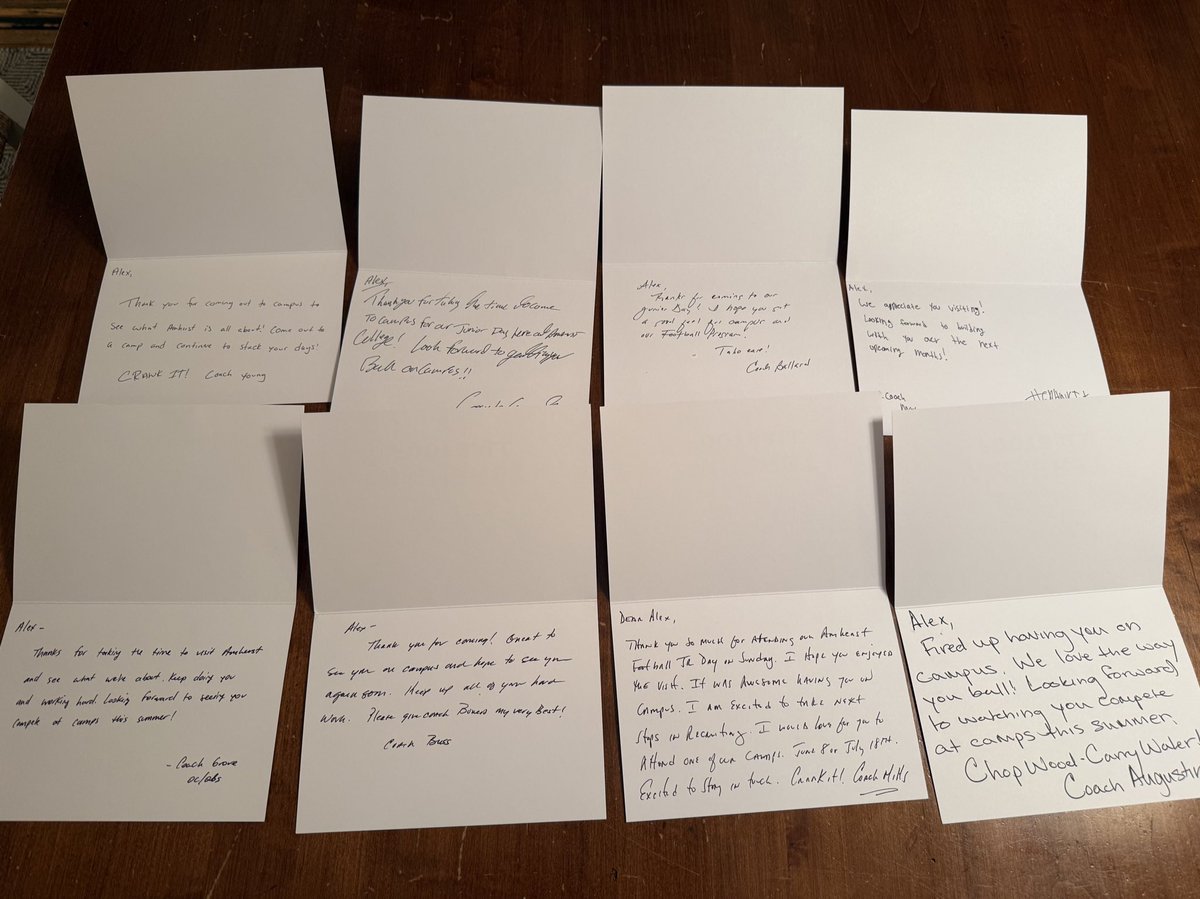 Alex,
Thank you for coming out to campus to
see what Amherst is all about! Come out to
a camp and continue to stack your days!
CRANK IT! Coach Young
Alex,
Thank you for taking the time to come
to campus for our Junior Day here at Amherst
College! Look forward to getting you
Back on campus!!
Alex,
Thanks for coming to our
Junior Day! I hope you got
a good feel for campus and
our Football Program!
Take care!
Coach Ballard
Alex,
We appreciate you visiting!
Looking forward to building
with you over the next
upcoming months!
-Coach
Alex-
Thanks for taking the time to visit Amherst
and see what we're about. Keep doing you
and working hard. Looking forward to seeing you
compete at camps this summer!
-Coach Grove
OC/QBs
Alex-
Thank you for coming! Great to
see you on campus and hope to see you
again soon. Keep up all of your hard
work. Please give coach my very Best!
Coach
Dear Alex,
Thank you so much for attending our Amherst
Football JR Day on Sunday. I Hope you enjoyed
the visit. It was awesome having you on
campus. I am excited to take next
steps in Recruiting. I would love for you to
Attend one of our camps. June 8 or July 18th.
Excited to stay in touch. Crank it! Coach Mills
Alex,
Fired up having you on
campus. We love the way
you ball! Looking forward
to watching you compete
at camps this summer.
Chop Wood-Carry Water!
Coach Augustin